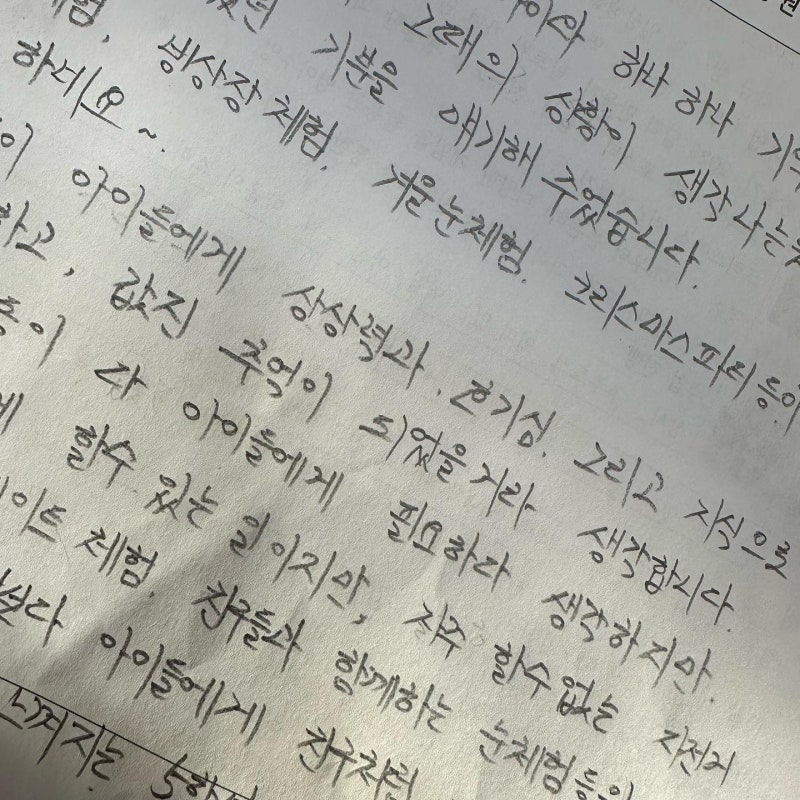 하나 하나
그때의 상황이 생각나는
기분을 얘기해 주었습니다.
체험, 빙상장 체험, 겨울눈체험, 크리스마스파티등이
하네요~.
아이들에게 상상력과, 호기심, 그리고 지식으로
하고, 값진 추억이 되었을거라 생각합니다.
등이 다 아이들에게 필요하다 생각하지만,
할수 있는 일이지만, 자주 할수없는 자전거
체험, 친구들과 함께하는 눈체험등이
보다 아이들에게 친구처럼
느껴지는